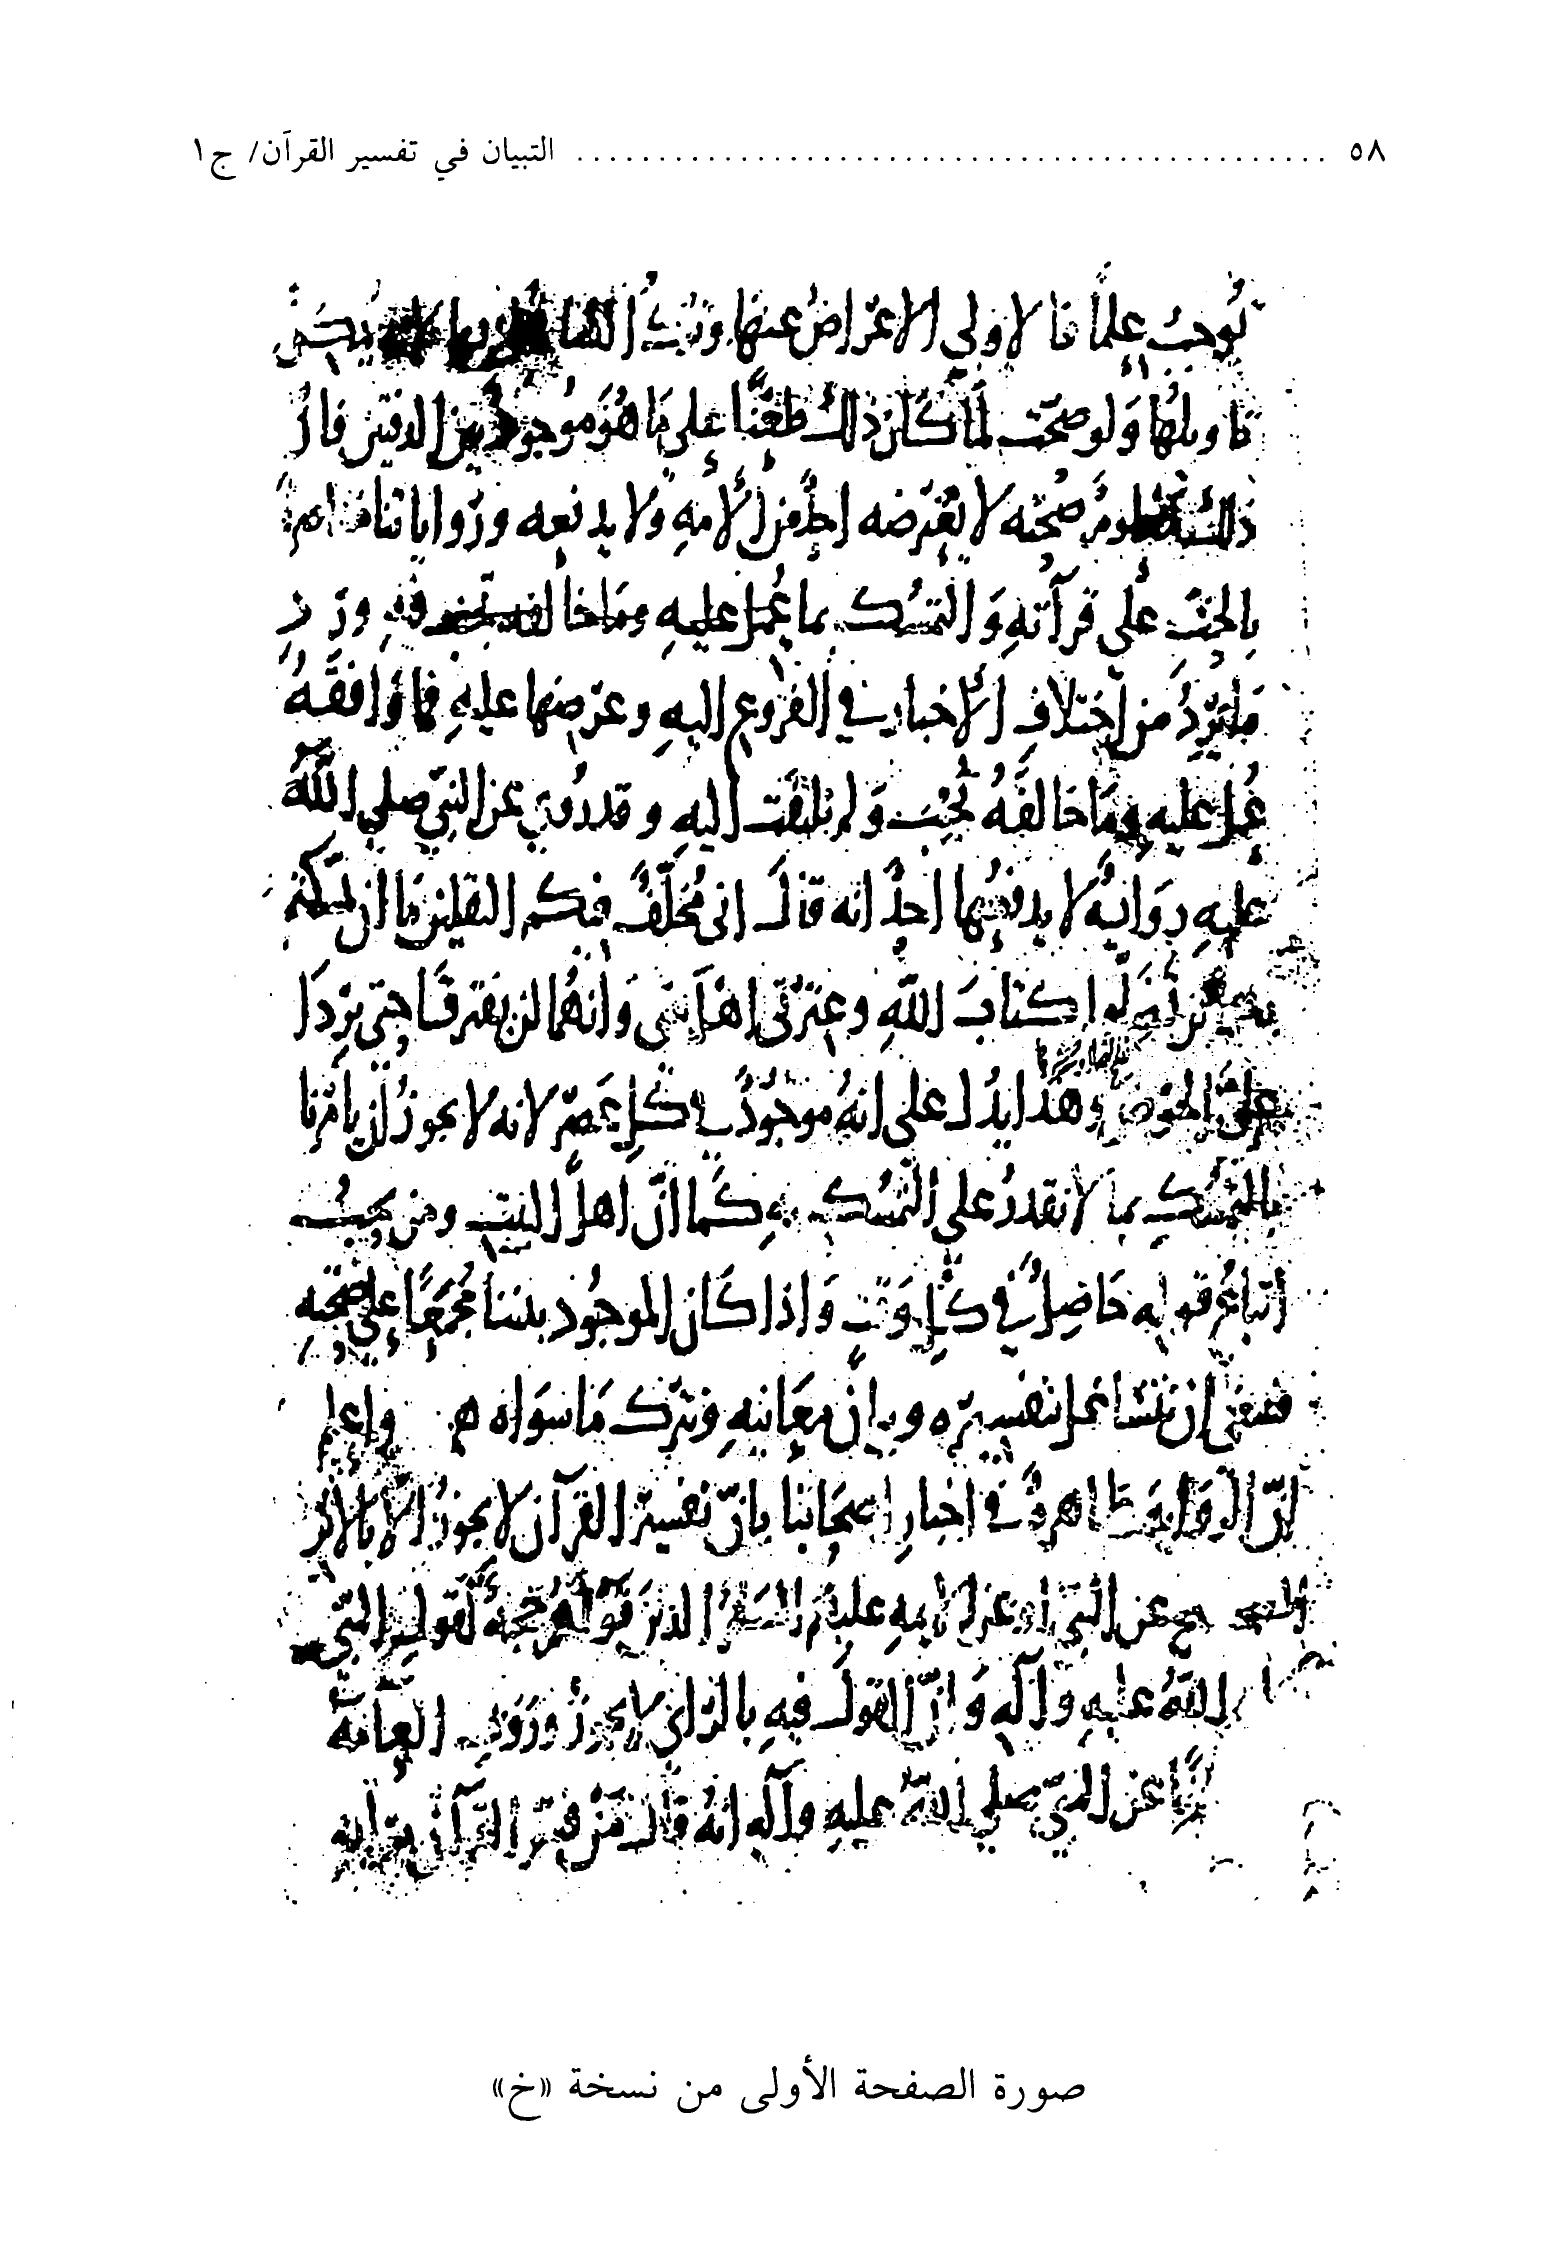 ٥٨ ........................................ التبيان في تفسير القرآن/ ج١
توجب علمًا فالاولى الاعراض عنها وترك التشاغل بها لانه يمكن
تاويلها ولو صحت لما كان ذلك طعنًا على ما هو موجود بين الدفتين فان
ذلك معلوم صحته لا يعترضه احد من الامة ولا يدفعه ورواياتنا
بالحث على قرآته والتمسك بما عمل عليه وما خالفه فيه ورد
ما يرد من اختلاف الاخبار في الفروع اليه وعرضها عليه فما وافقه
عمل عليه وما خالفه تجنب ولم يلتفت اليه وقد روي عن النبي صلى الله
عليه رواية لا يدفعها احد انه قال انى مخلف فيكم الثقلين ما ان تمسكتم
بهما لن تضلوا كتاب الله وعترتى اهل بيتى وانهما لن يفترقا حتى يردا
على الحوض وهذا يدل على انه موجود في كل عصر لانه لا يجوز ان يامرنا
بالتمسك بما لا نقدر على التمسك به كما ان اهل البيت ومن يجب
اتباع قوله حاصل في كل وقت واذا كان الموجود بيننا مجمعًا على صحته
فينبغى ان نتشاغل بتفسيره وبيان معانيه ونترك ما سواه واعلم
ان الرواية ظاهرة في اخبار اصحابنا بان تفسير القرآن لا يجوز الا بالاثر
الصحيح عن النبي او عن الايمة عليهم السلم الذين قولهم حجة كقول النبي
الله عليه وآله وان القول فيه بالراي لا يجوز وروت العامة
عن النبي صلى الله عليه وآله انه قال من فسر القرآن برأيه
صورة الصفحة الأولى من نسخة «خ»